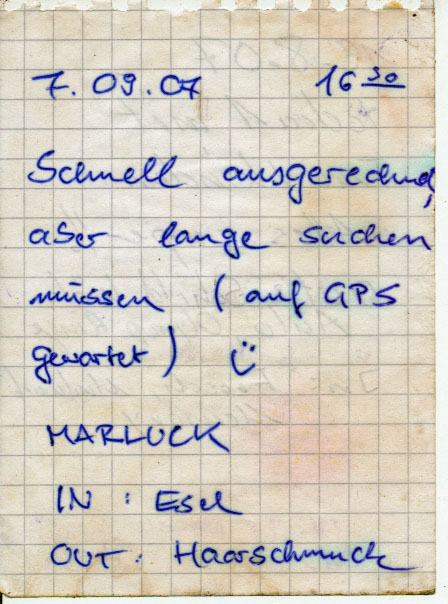 7.09.07 16 30
Schnell ausgerechnet,
aber lange suchen
müssen (auf GPS
gewartet) ü
MARLUCK
IN : Esel
OUT : Haarschmuck